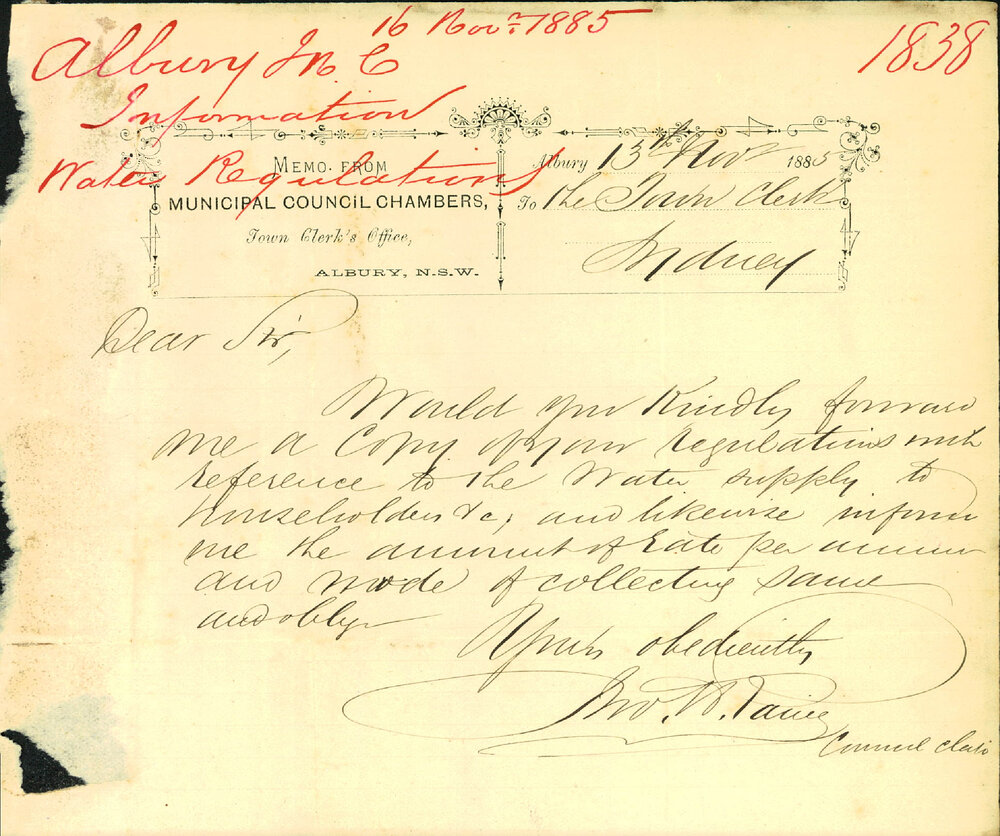 16 Novr. 1885
1838
Albury M C
Information
Water Regulations
MEMO. FROM
MUNICIPAL COUNCIL CHAMBERS,
Town Clerk's Office,
ALBURY, N.S.W.
Albury 13th Novr 1885
To The Town Clerk
Sydney
Dear Sir,
Would you Kindly forward
me a Copy of your regulations with
reference to the Water supply to
householders &c, and likewise inform
me the amount of rate per annum
and mode of collecting same
and oblige
Yours obediently
Jno. W.
Council Clerk